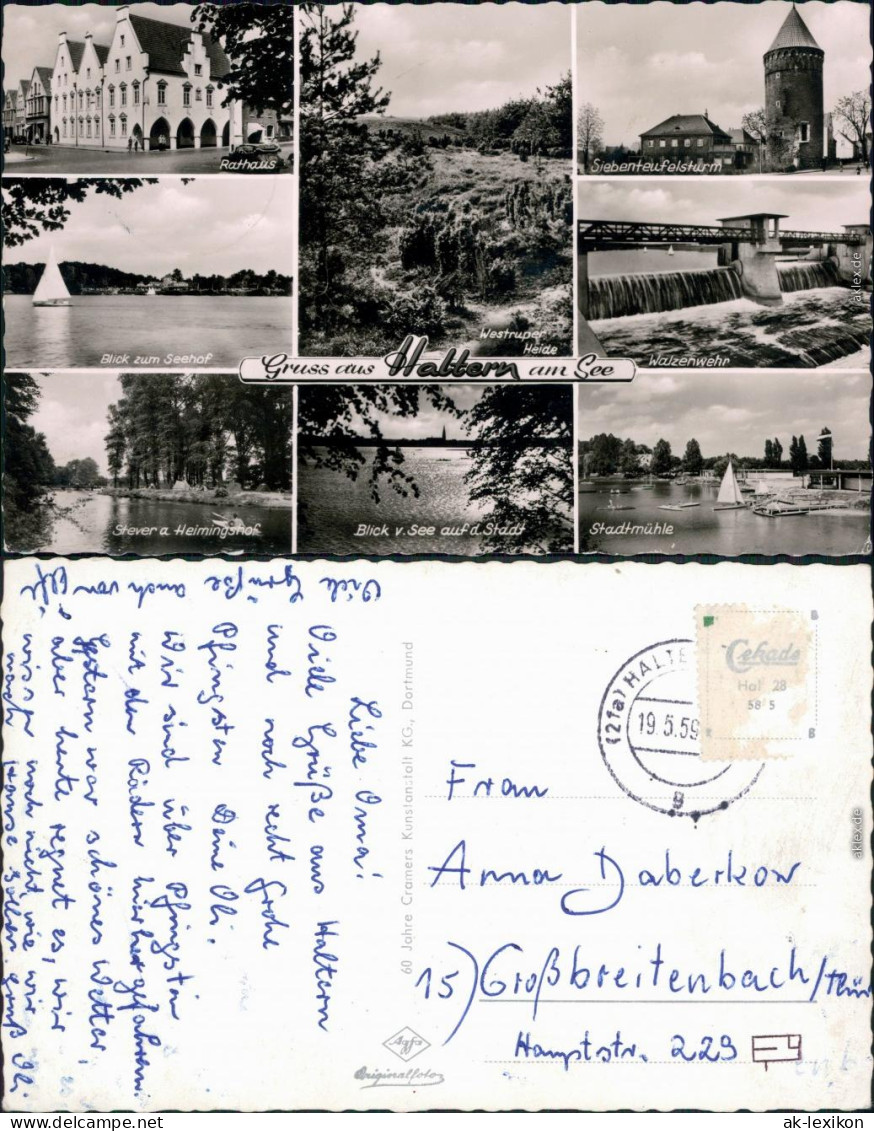 Rathaus
Westruper
Heide
Siebenteufelsturm
Blick zum Seehof
Walzenwehr
Gruss aus Haltern am See
Stever a. Heimingshof
Blick v. See auf d. Stadt
Stadtmühle
akleix.de
Liebe Oma!
Viele Grüße aus Haltern
und noch recht frohe
Pfingsten Deine Oli.
Wir sind über Pfingsten
mit den Rädern hierhergefahren.
Gestern war schönes Wetter,
aber heute regnet es, wir
wissen noch nicht wie wir
nach Hause sollen
Viele Grüße auch von
60 Jahre Cramers Kunstanstalt KG., Dortmund
Agfa
Originalfoto
(21a) HALTE
19.5.59
g
Cekade
Hal 28
58 5
B
B
Frau
Anna Daberkow
15) Großbreitenbach/Thür
Hauptstr. 229
aklex.de
ak-lexikon